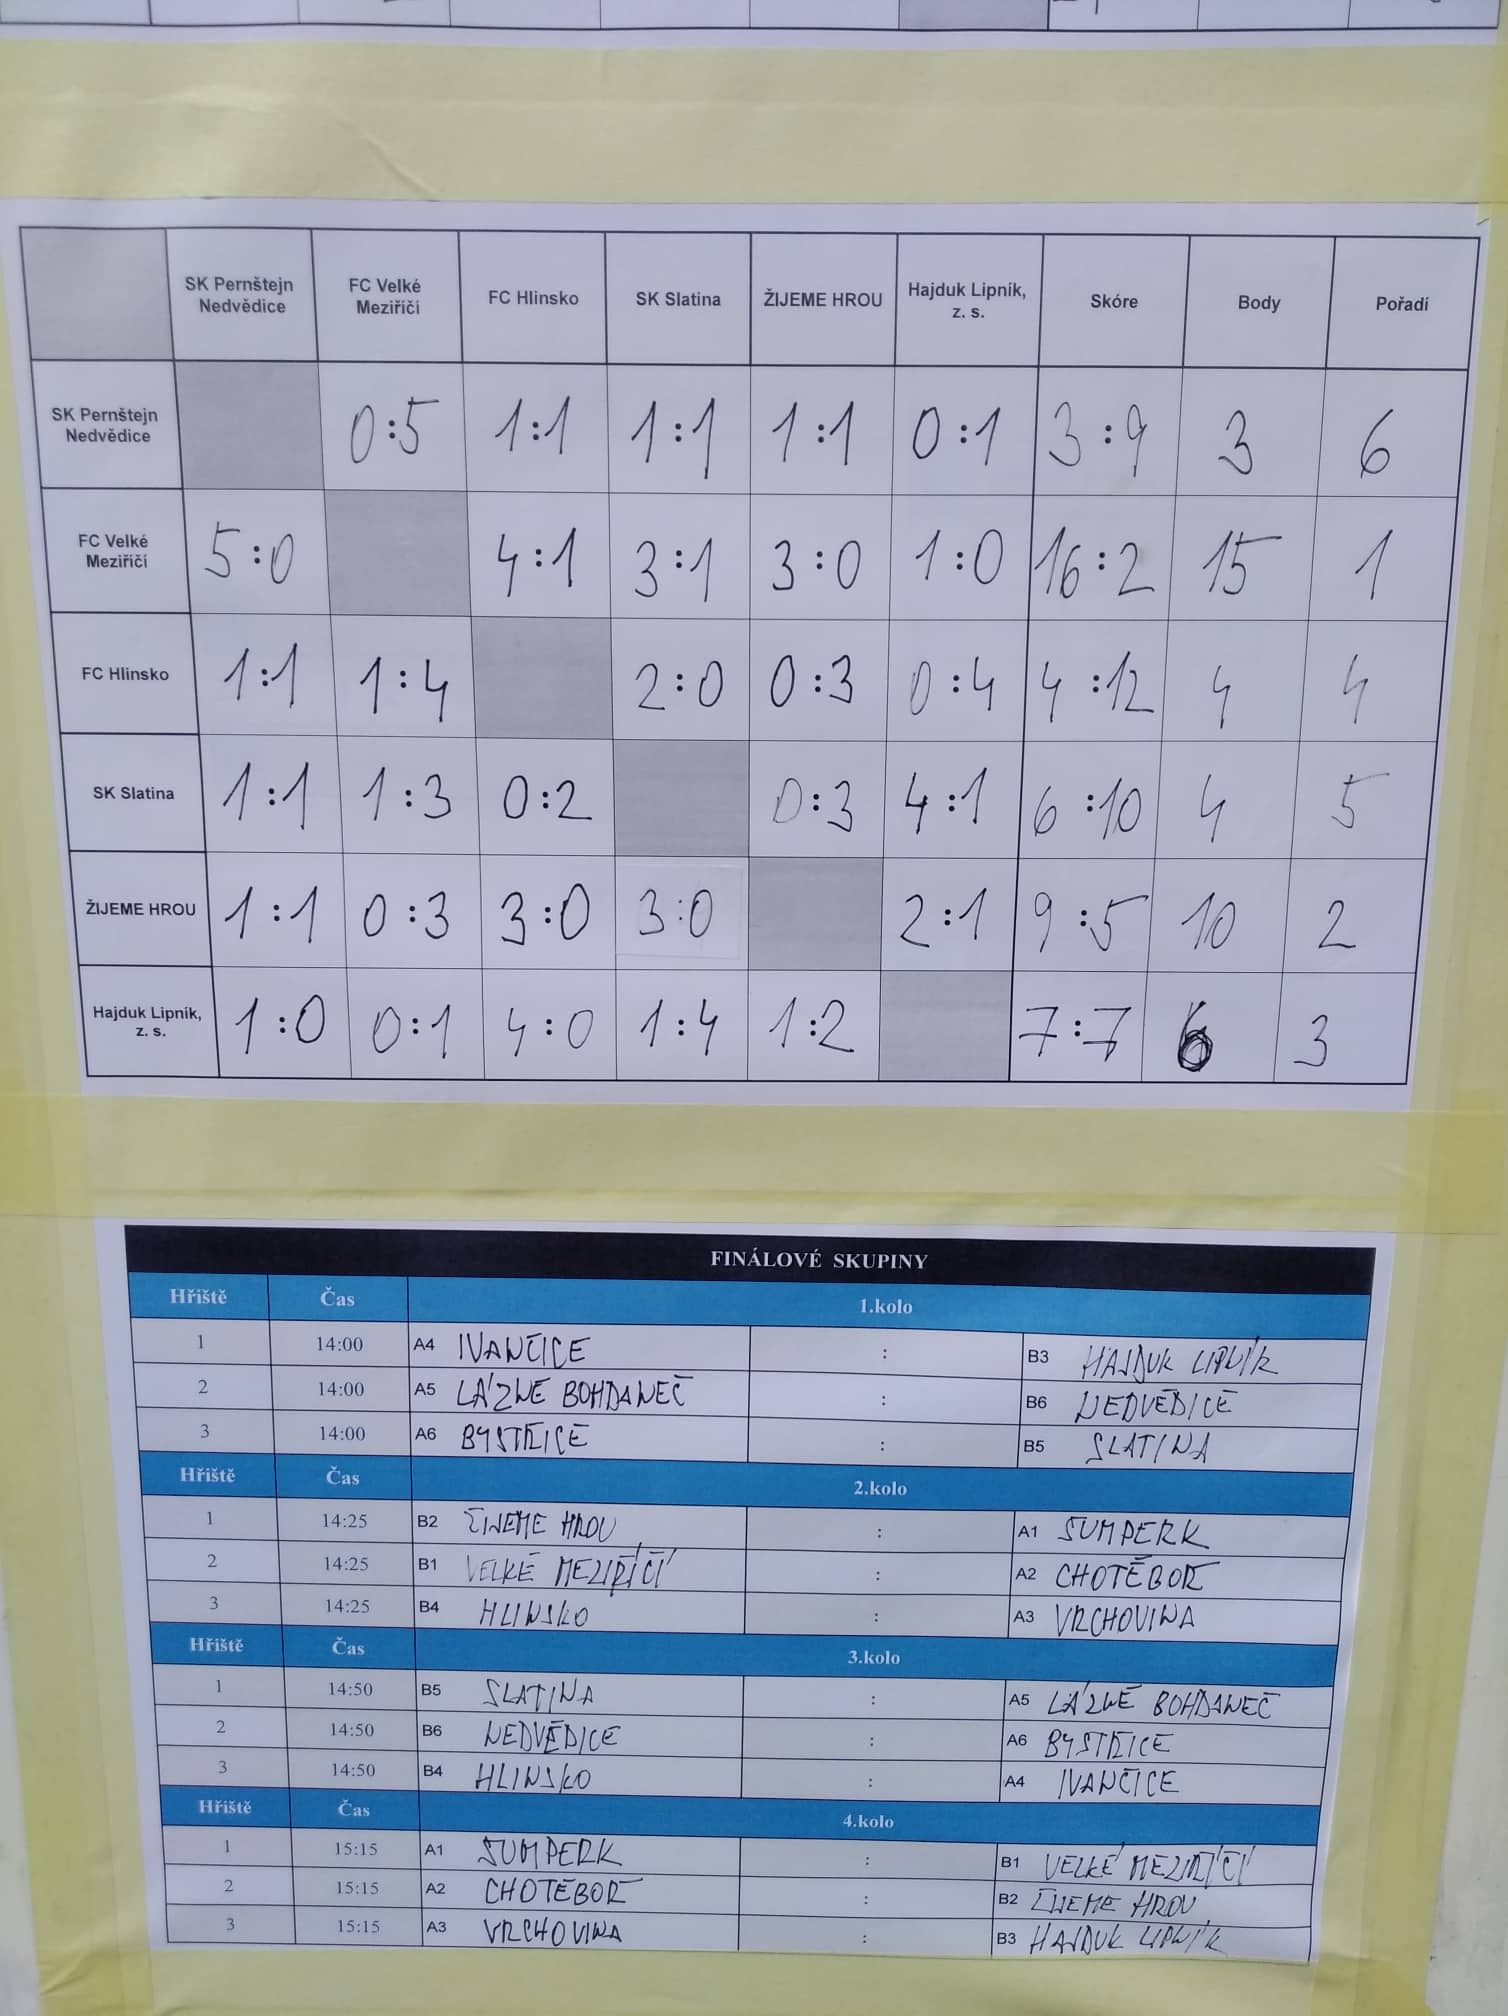 SK Pernštejn Nedvědice FC Velké Meziříčí FC Hlinsko SK Slatina ŽIJEME HROU Hajduk Lipník, z. s. Skóre Body Pořadí
SK Pernštejn Nedvědice 0:5 1:1 1:1 1:1 0:1 3:9 3 6
FC Velké Meziříčí 5:0 4:1 3:1 3:0 1:0 16:2 15 1
FC Hlinsko 1:1 1:4 2:0 0:3 0:4 4:12 4 4
SK Slatina 1:1 1:3 0:2 0:3 4:1 6:10 4 5
ŽIJEME HROU 1:1 0:3 3:0 3:0 2:1 9:5 10 2
Hajduk Lipník, z. s. 1:0 0:1 4:0 1:4 1:2 7:7 6 3
FINÁLOVÉ SKUPINY
Hřiště Čas 1.kolo
1 14:00 A4 IVANČICE : B3 HAJDUK LIPNÍK
2 14:00 A5 LÁZNĚ BOHDANEČ : B6 NEDVĚDICE
3 14:00 A6 BYSTŘICE : B5 SLATINA
Hřiště Čas 2.kolo
1 14:25 B2 ŽIJEME HROU : A1 ŠUMPERK
2 14:25 B1 VELKÉ MEZIŘÍČÍ : A2 CHOTĚBOŘ
3 14:25 B4 HLINSKO : A3 VRCHOVINA
Hřiště Čas 3.kolo
1 14:50 B5 SLATINA : A5 LÁZNĚ BOHDANEČ
2 14:50 B6 NEDVĚDICE : A6 BYSTŘICE
3 14:50 B4 HLINSKO : A4 IVANČICE
Hřiště Čas 4.kolo
1 15:15 A1 ŠUMPERK : B1 VELKÉ MEZIŘÍČÍ
2 15:15 A2 CHOTĚBOŘ : B2 ŽIJEME HROU
3 15:15 A3 VRCHOVINA : B3 HAJDUK LIPNÍK